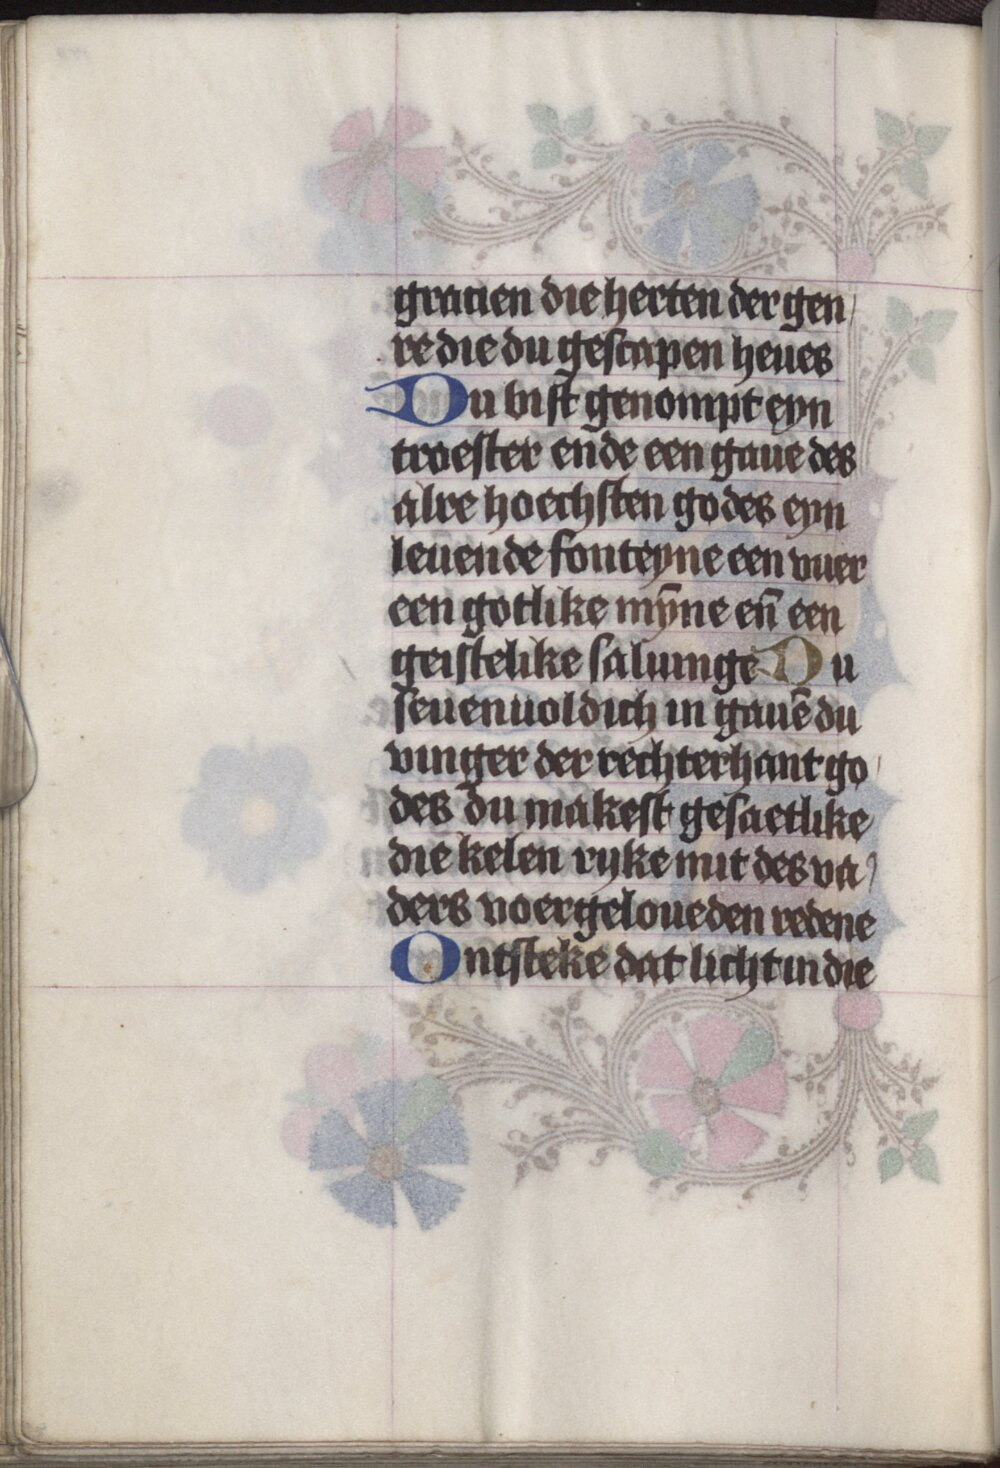 gracien die herten der gen
re die du gescapen heues
Du bist genompt eyn
troester ende een gaue des
alre hoechsten godes eyn
leuende fonteyne een vuer
een gotlike mȳne en̄ een
geistelike saluinge Du
seuenuoldich in gauē du
vinger der rechterhant go
des du makest gesaetlike
die kelen ryke mit des va
ders voergeloueden redene
Ontsteke dat licht in die